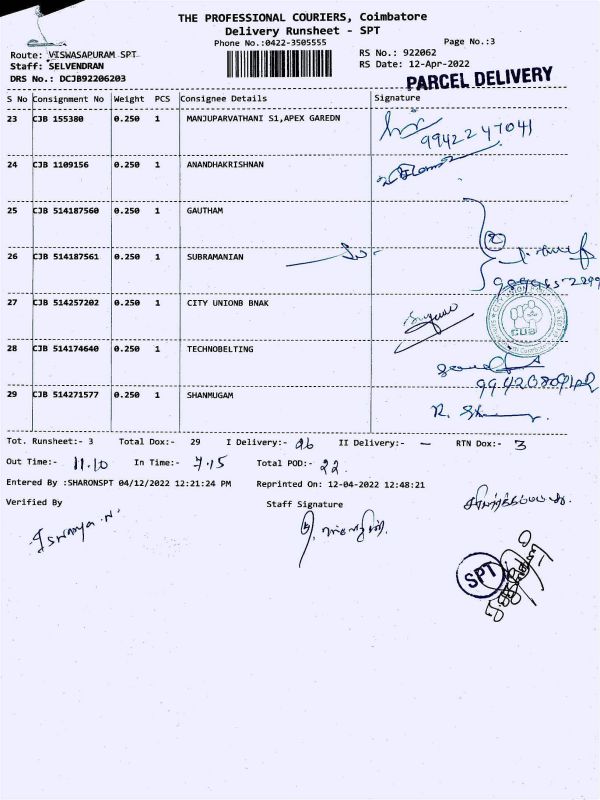 THE PROFESSIONAL COURIERS, Coimbatore
Delivery Runsheet - SPT
Phone No.:0422-3505555
Page No.:3
Route: VISWASAPURAM SPT
RS No.: 922062
Staff: SELVENDRAN
RS Date: 12-Apr-2022
DRS No.: DCJB92206203
PARCEL DELIVERY
S No Consignment No Weight PCS Consignee Details Signature
23 CJB 155380 0.250 1 MANJUPARVATHANI S1,APEX GAREDN
9942247041
24 CJB 1109156 0.250 1 ANANDHAKRISHNAN
25 CJB 514187560 0.250 1 GAUTHAM
26 CJB 514187561 0.250 1 SUBRAMANIAN
27 CJB 514257202 0.250 1 CITY UNIONB BNAK
CUB
28 CJB 514174640 0.250 1 TECHNOBELTING
29 CJB 514271577 0.250 1 SHANMUGAM
Tot. Runsheet:- 3 Total Dox:- 29 I Delivery:- 26 II Delivery:- — RTN Dox:- 3
Out Time:- 11.10 In Time:- 7.15 Total POD:- 22.
Entered By :SHARONSPT 04/12/2022 12:21:24 PM Reprinted On: 12-04-2022 12:48:21
Verified By Staff Signature
SPT